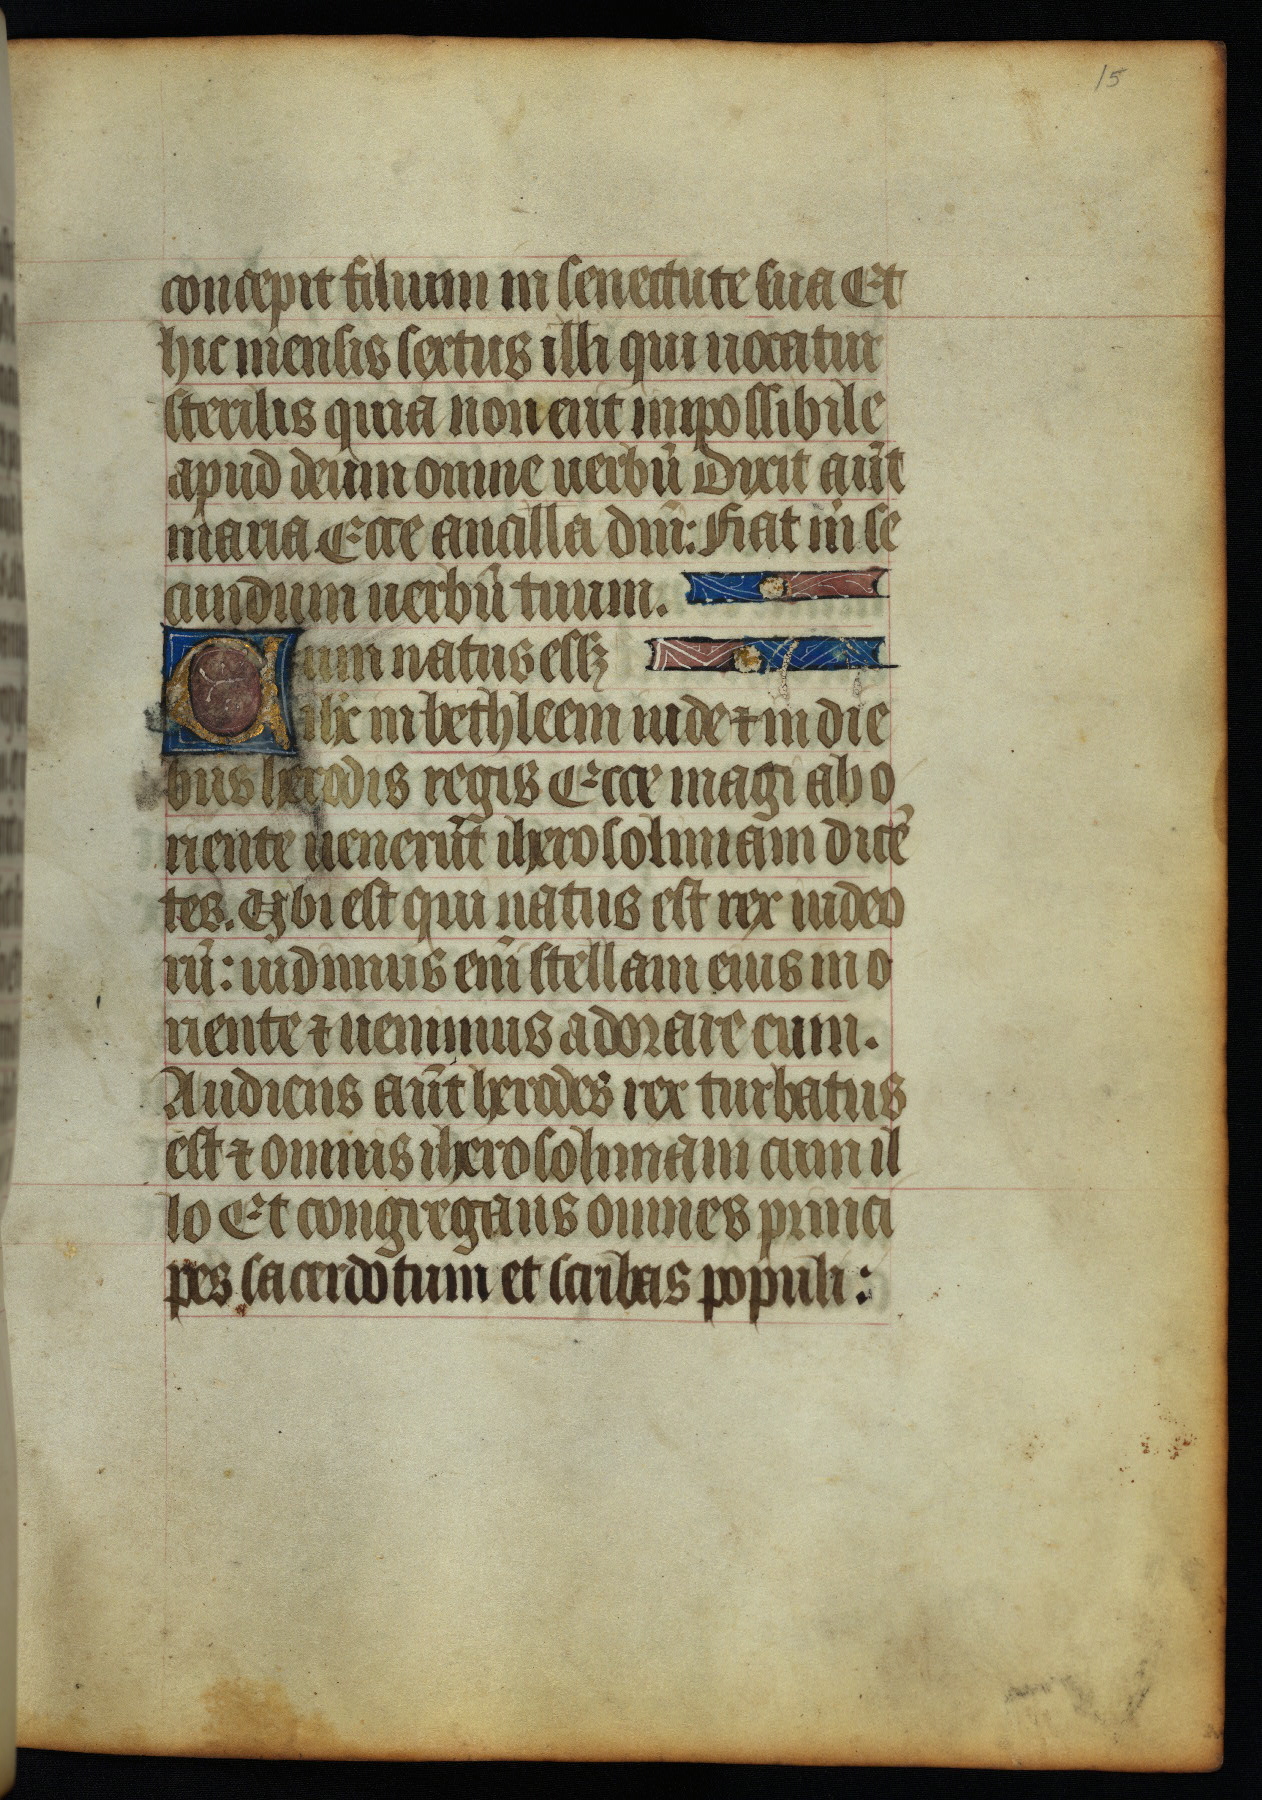 15
concepit filium in senectute sua Et
hic mensis sextus illi qui uocatur
sterilis quia non erit inpossibile
apud deum omne uerbū Dixit aūt
maria Ecce ancilla dn̄i: Fiat m̄ se
cundum uerbū tuum.
Cum natus esset
ihc in bethleem iude ⁊ in die
bus herodis regis Ecce magi ab o
riente uenerūt iherosolimam dicē
tes. Ubi est qui natus est rex iudeo
rū: uidimus eni̅ stellam eius in o
riente ⁊ uenimus adorare eum.
Audiens aūt herodes rex turbatus
est ⁊ omnis iherosolimam cum il
lo Et congregans omnes princi
pes sacerdotum et scribas populi: